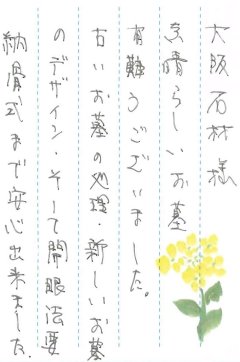 大阪石材様
素晴らしいお墓
有難うございました。
古いお墓の処理・新しいお墓
のデザイン・そして開眼法要
納骨式まで安心出来ました。